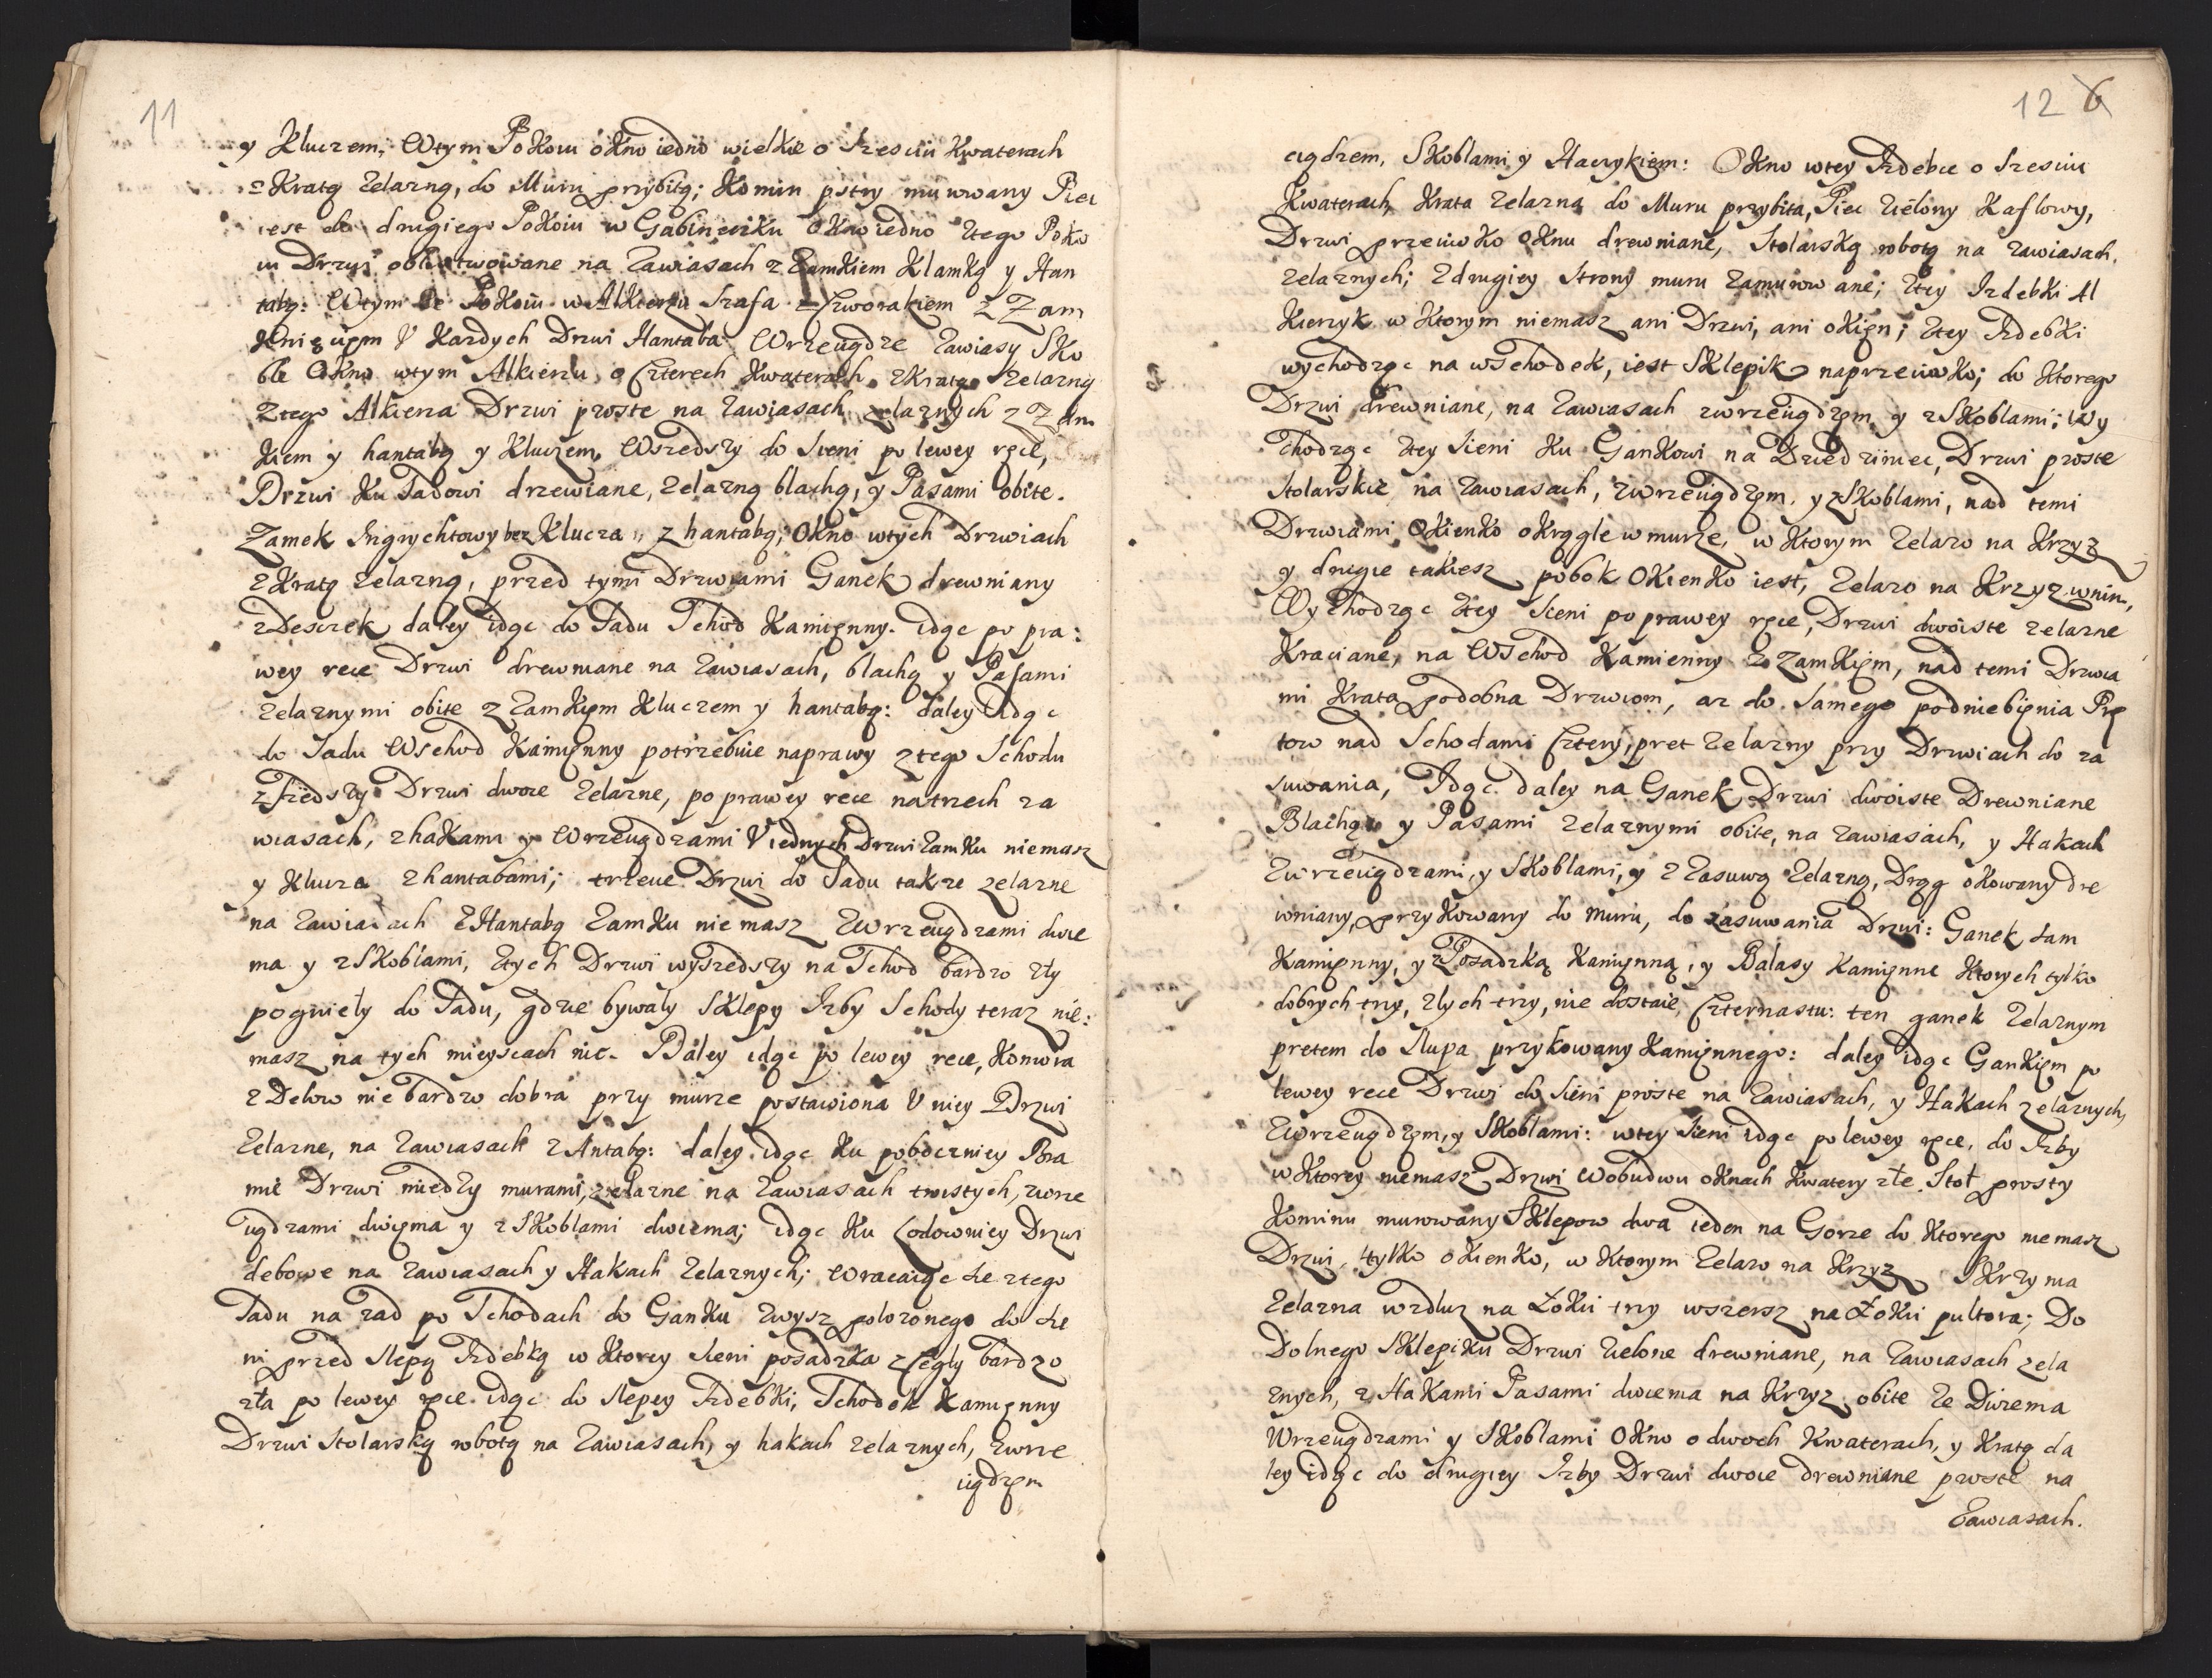 11
y Kluczem, Wtym Pokoiu okno iedno wielkie o szesciu Kwaterach
z Kratą Zelazną, do Muru przybitą; Komin pstry murowany Piec
iest do drugiego Pokoiu w Gabineciku Okno iedno Ztego Poko
iu Drzwi na Zawiasach z Zamkiem Klamką y Han
tabą: Wtym Pokoiu w Alkierzu Szafa z Czworakiem z Zam
V Kazdych Drzwi Hantaba Wrzeciądze Zawiasy Sko
ble Okno wtym Alkierzu o Czterech Kwaterach z Kratą Zelazną
Ztego Alkierza Drzwi proste na Zawiasach zelaznych z Zam
kiem y hantabą y Kluczem, Wszedszy do Sieni po lewey ręce,
Drzwi Ku Sadowi drzewiane, Zelazną blachą, y Pasami obite.
Zamek Ingrychtowy bez Klucza, z hantabą; Okno wtych Drzwiach
z Kratą Zelazną, przed tymi Drzwiami Ganek drewniany
z Desczek daley idąc do Sadu Schod Kamięnny. idąc po pra:
wey rece Drzwi drewniane na Zawiasach, blachą y Pasami
Zelaznymi obite z Zamkięm Kluczem y hantabą: daley Idąc
do Sadu Wschod Kamięnny potrzebuie naprawy z tego Schodu
zszedszy Drzwi dwoie Zelazne, po prawey rece na trzech za
wiasach, z hakami y Wrzeciądzami V iednych Drzwi Zamku niemasz
y Klucza z hantabami; trzecie Drzwi do Sadu takze zelazne
na Zawiasach z Hantabą Zamku nie masz Zwrzeciądzami dwie
ma y z Skoblami, Ztych Drzwi wyszedszy na Schod bardzo zły
pogniely do Sadu, gdzie bywaly Sklepy Izby Schody teraz nie:
masz na tych mieyscach nic. Daley idąc po lewey rece, Komora
z Delow nie bardzo dobra przy murze postawiona V niey Drzwi
Zelazne, na Zawiasach z Antabą: daley idąc Ku poboczniey Bra
mie Drzwi miedzy murami, zelazne na Zawiasach troistych, zwrze
ciądzami dwięma y z Skoblami dwiema; idąc Ku Lodowniey Drzwi
debowe na Zawiasach y Hakach Zelaznych; Wracaiąc sie z tego
Sadu na zad po Schodach do Ganku Zwysz polozonego do Sie
ni przed Slepą Izdebką w Ktorey Sieni posadzka z Cegly bardzo
zła po lewey ręce idąc do Slepey Izdebki, Schodek Kamięnny
Drzwi Stolarską robotą na Zawiasach, y hakach zelaznych, Zwrze
ciądzęm
12 6
ciądzem, Skoblami y Haczykiem: Okno wtey Izdebce o szesciu
Kwaterach, Krata Zelazna do Muru przybita, Piec Zielony Kaflowy,
Drzwi przeciwko Oknu drewniane, Stolarską robotą na Zawiasach
Zelaznych; Zdrugiey Strony muru Zamurowane; Ztey Izdebki Al
kierzyk w Ktorym niemasz ani Drzwi, ani okięn; Ztey Izdebki
wychodząc na wschodek, iest Sklepik naprzeciwko; do Ktorego
Drzwi drewniane, na Zawiasach zwrzeciądzęm y z Skoblami; Wy
chodząc Ztey Sieni Ku Gankowi na Dziedziniec, Drzwi proste
Stolarskie na Zawiasach, zwrzeciądzęm y z Skoblami, nad temi
Drzwiami Okienko okrągle w murze, w Ktorym Zelazo na Krzyz
y drugie takiesz pobok Okienko iest, Zelazo na Krzyz wnim,
Wychodząc Ztey Sieni po prawey ręce, Drzwi dwoiste zelazne
Kraciane, na Wschod Kamienny z Zamkięm, nad temi Drzwia
mi Krata podobna Drzwiom, az do samego podniebięnia Prę
tow nad Schodami Cztery, pret Zelazny przy Drzwiach do za
suwania, Idąc daley na Ganek Drzwi dwoiste Drewniane
Blachą y Pasami Zelaznymi obite, na Zawiasach, y Hakach
Zwrzeciądzami, y Skoblami, y z Zasuwą Zelazną, Drąg okowany dre
wniany, przykowany do muru, do zasuwania Drzwi: Ganek sam
Kamięnny, y Posadzką Kamięnną, y Balasy Kamięnne Ktorych tylko
dobrych trzy, Zlych trzy, nie dostaie Czternastu: ten ganek Zelaznym
pretem do Slupa przykowany Kamięnnego: daley idąc Gankięm po
lewey rece Drzwi do Sieni proste na Zawiasach, y Hakach zelaznych,
Zwrzeciądzęm, y Skoblami: wtey Sieni idąc po lewey ręce, do Izby
w Ktorey niemasz Drzwi Wobudwu oknach Kwatery złe. Stoł prosty
Kominu murowany Sklepow dwa ieden na Gorze do Ktorego niemasz
Drzwi, tylko okienko, w Ktorym Zelazo na Krzyz Skrzyma
Zelazna wzdluz na Łokci trzy wszersz na Łokci pultora; Do
Dolnego Sklepiku Drzwi Zielone drewniane, na Zawiasach zela
znych, z Hakami Pasami dwiema na Krzyz obite Ze Dwiema
Wrzeciądzami y Skoblami Okno o dwoch Kwaterach, y Kratą da
ley idąc do drugiey Izby Drzwi dwoie drewniane proste na
Zawiasach.